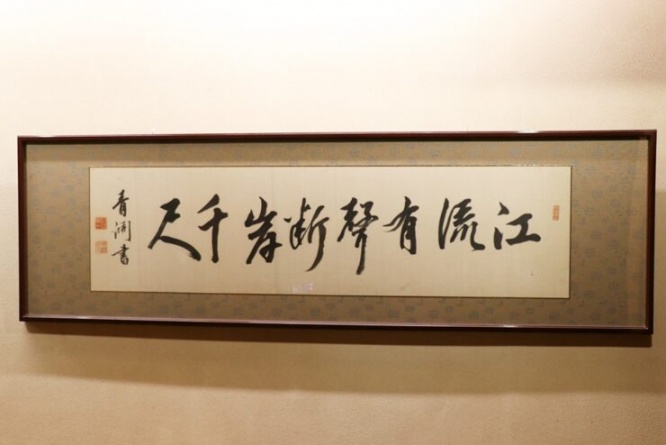 江流有聲断岸千尺
青淵書